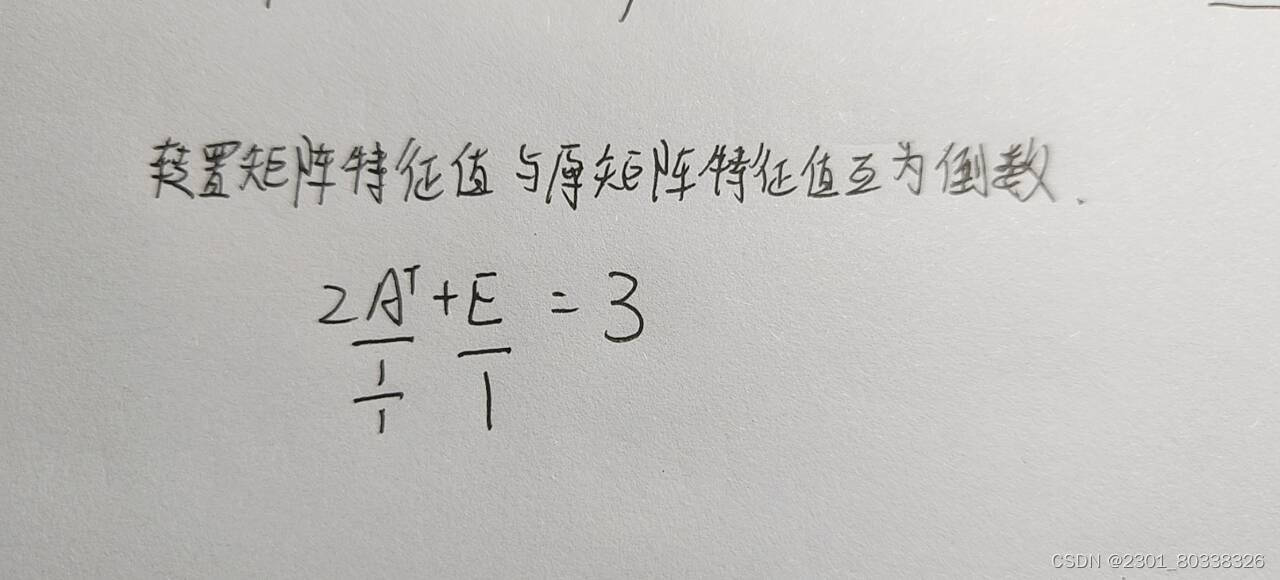 转置矩阵特征值与原矩阵特征值互为倒数.
2Aᵀ+E = 3
1/1 1
CSDN @2301_80338326